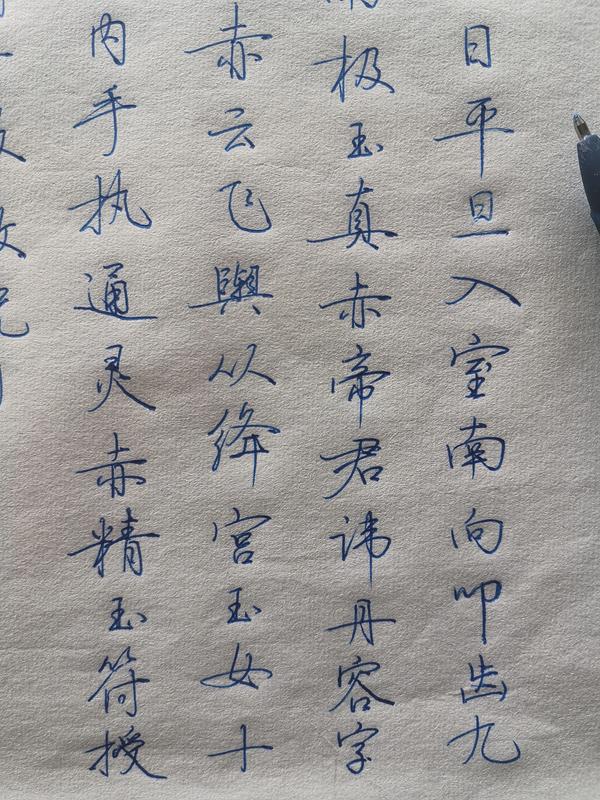 日平旦入室南向叩齿九
极玉真赤帝君讳丹容字
赤云飞舆以绛宫玉女十
内手执通灵赤精玉符授